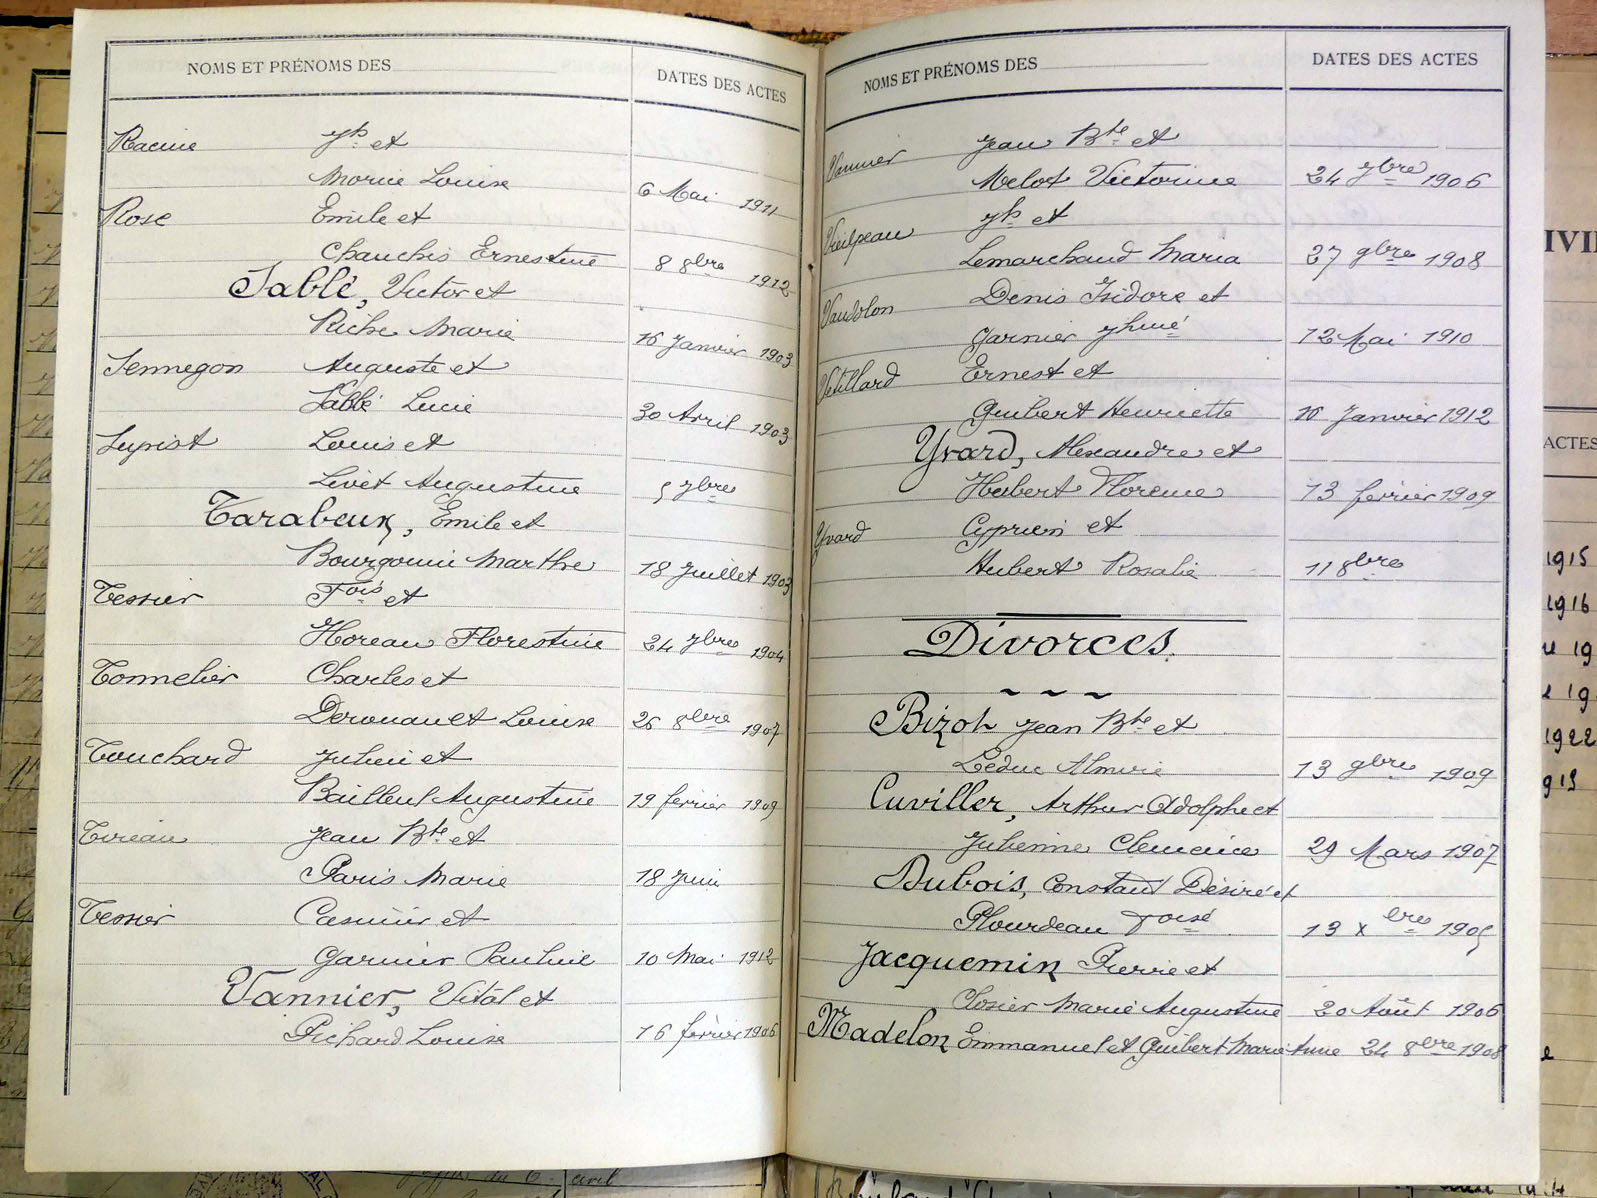 NOMS ET PRÉNOMS DES DATES DES ACTES
Racine Jph et
Morin Louise 6 Mai 1911
Rose Emile et
Chauchis Ernestine 8 8bre 1912
Sablé, Victor et
Riche Marie 16 Janvier 1903
Sennegon Auguste et
Sablé Lucie 30 Avril 1903
Supist Louis et
Livet Augustine 5 7bre
Tarabeux, Emile et
Bourgouin Marthe 18 Juillet 1903
Tessier Fois et
Horeau Florestine 24 7bre 1904
Tonnelier Charles et
Derouault Louise 26 8bre 1907
Touchard Julien et
Bailleul Augustine 19 février 1909
Tireau Jean Bte et
Paris Marie 18 Juin
Tessier Casimir et
Garnier Pauline 10 Mai 1912
Vannier, Vital et
Pichard Louise 16 février 1906
NOMS ET PRÉNOMS DES DATES DES ACTES
Vannier Jean Bte et
Melot Victorine 24 7bre 1906
Vieilpeau Jph et
Lemarchand Maria 27 9bre 1908
Vaudolon Denis Isidore et
Garnier Jphine 12 Mai 1910
Vétillard Ernest et
Guibert Henriette 16 Janvier 1912
Yvard, Alexandre et
Hubert Florence 13 février 1909
Yvard Cyprien et
Hubert Rosalie 11 8bre
Divorces.
Bizot Jean Bte et
Leduc Almire 13 9bre 1909
Cuviller, Arthur Adolphe et
Julienne Clémence 29 Mars 1907
Dubois, Constant Désiré et
Plourdeau Foise 13 Xbre 1905
Jacquemin Pierre et
Closier Marie Augustine 20 Août 1906
Madelon Emmanuel et Guibert Marie Anne 24 8bre 1908
IVI
ACTES
1915
1916
19
19
1922
913
civil